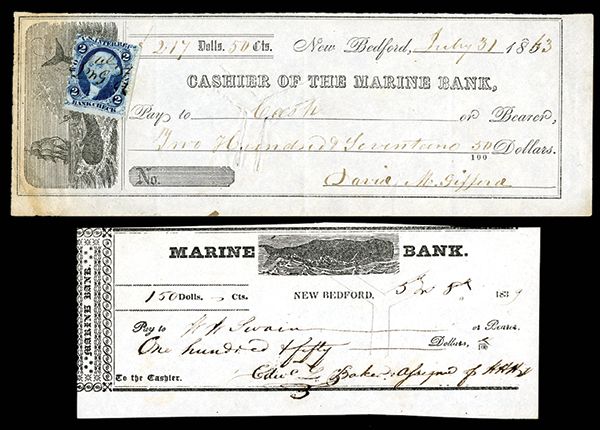 $ 217 Dolls. 50 Cts. New Bedford, July 31 1863
U.S. INTER. REV.
2 2
BANK CHECK
CASHIER OF THE MARINE BANK,
Pay to Cash or Bearer,
Two Hundred & Seventeen 50/100 Dollars.
No.
David M. Gifford
MARINE BANK.
MARINE BANK
150 Dolls. Cts. NEW BEDFORD. 8th 1839
Pay to W W Swain or Bearer.
One hundred & fifty Dollars, /100
To the Cashier. Baker